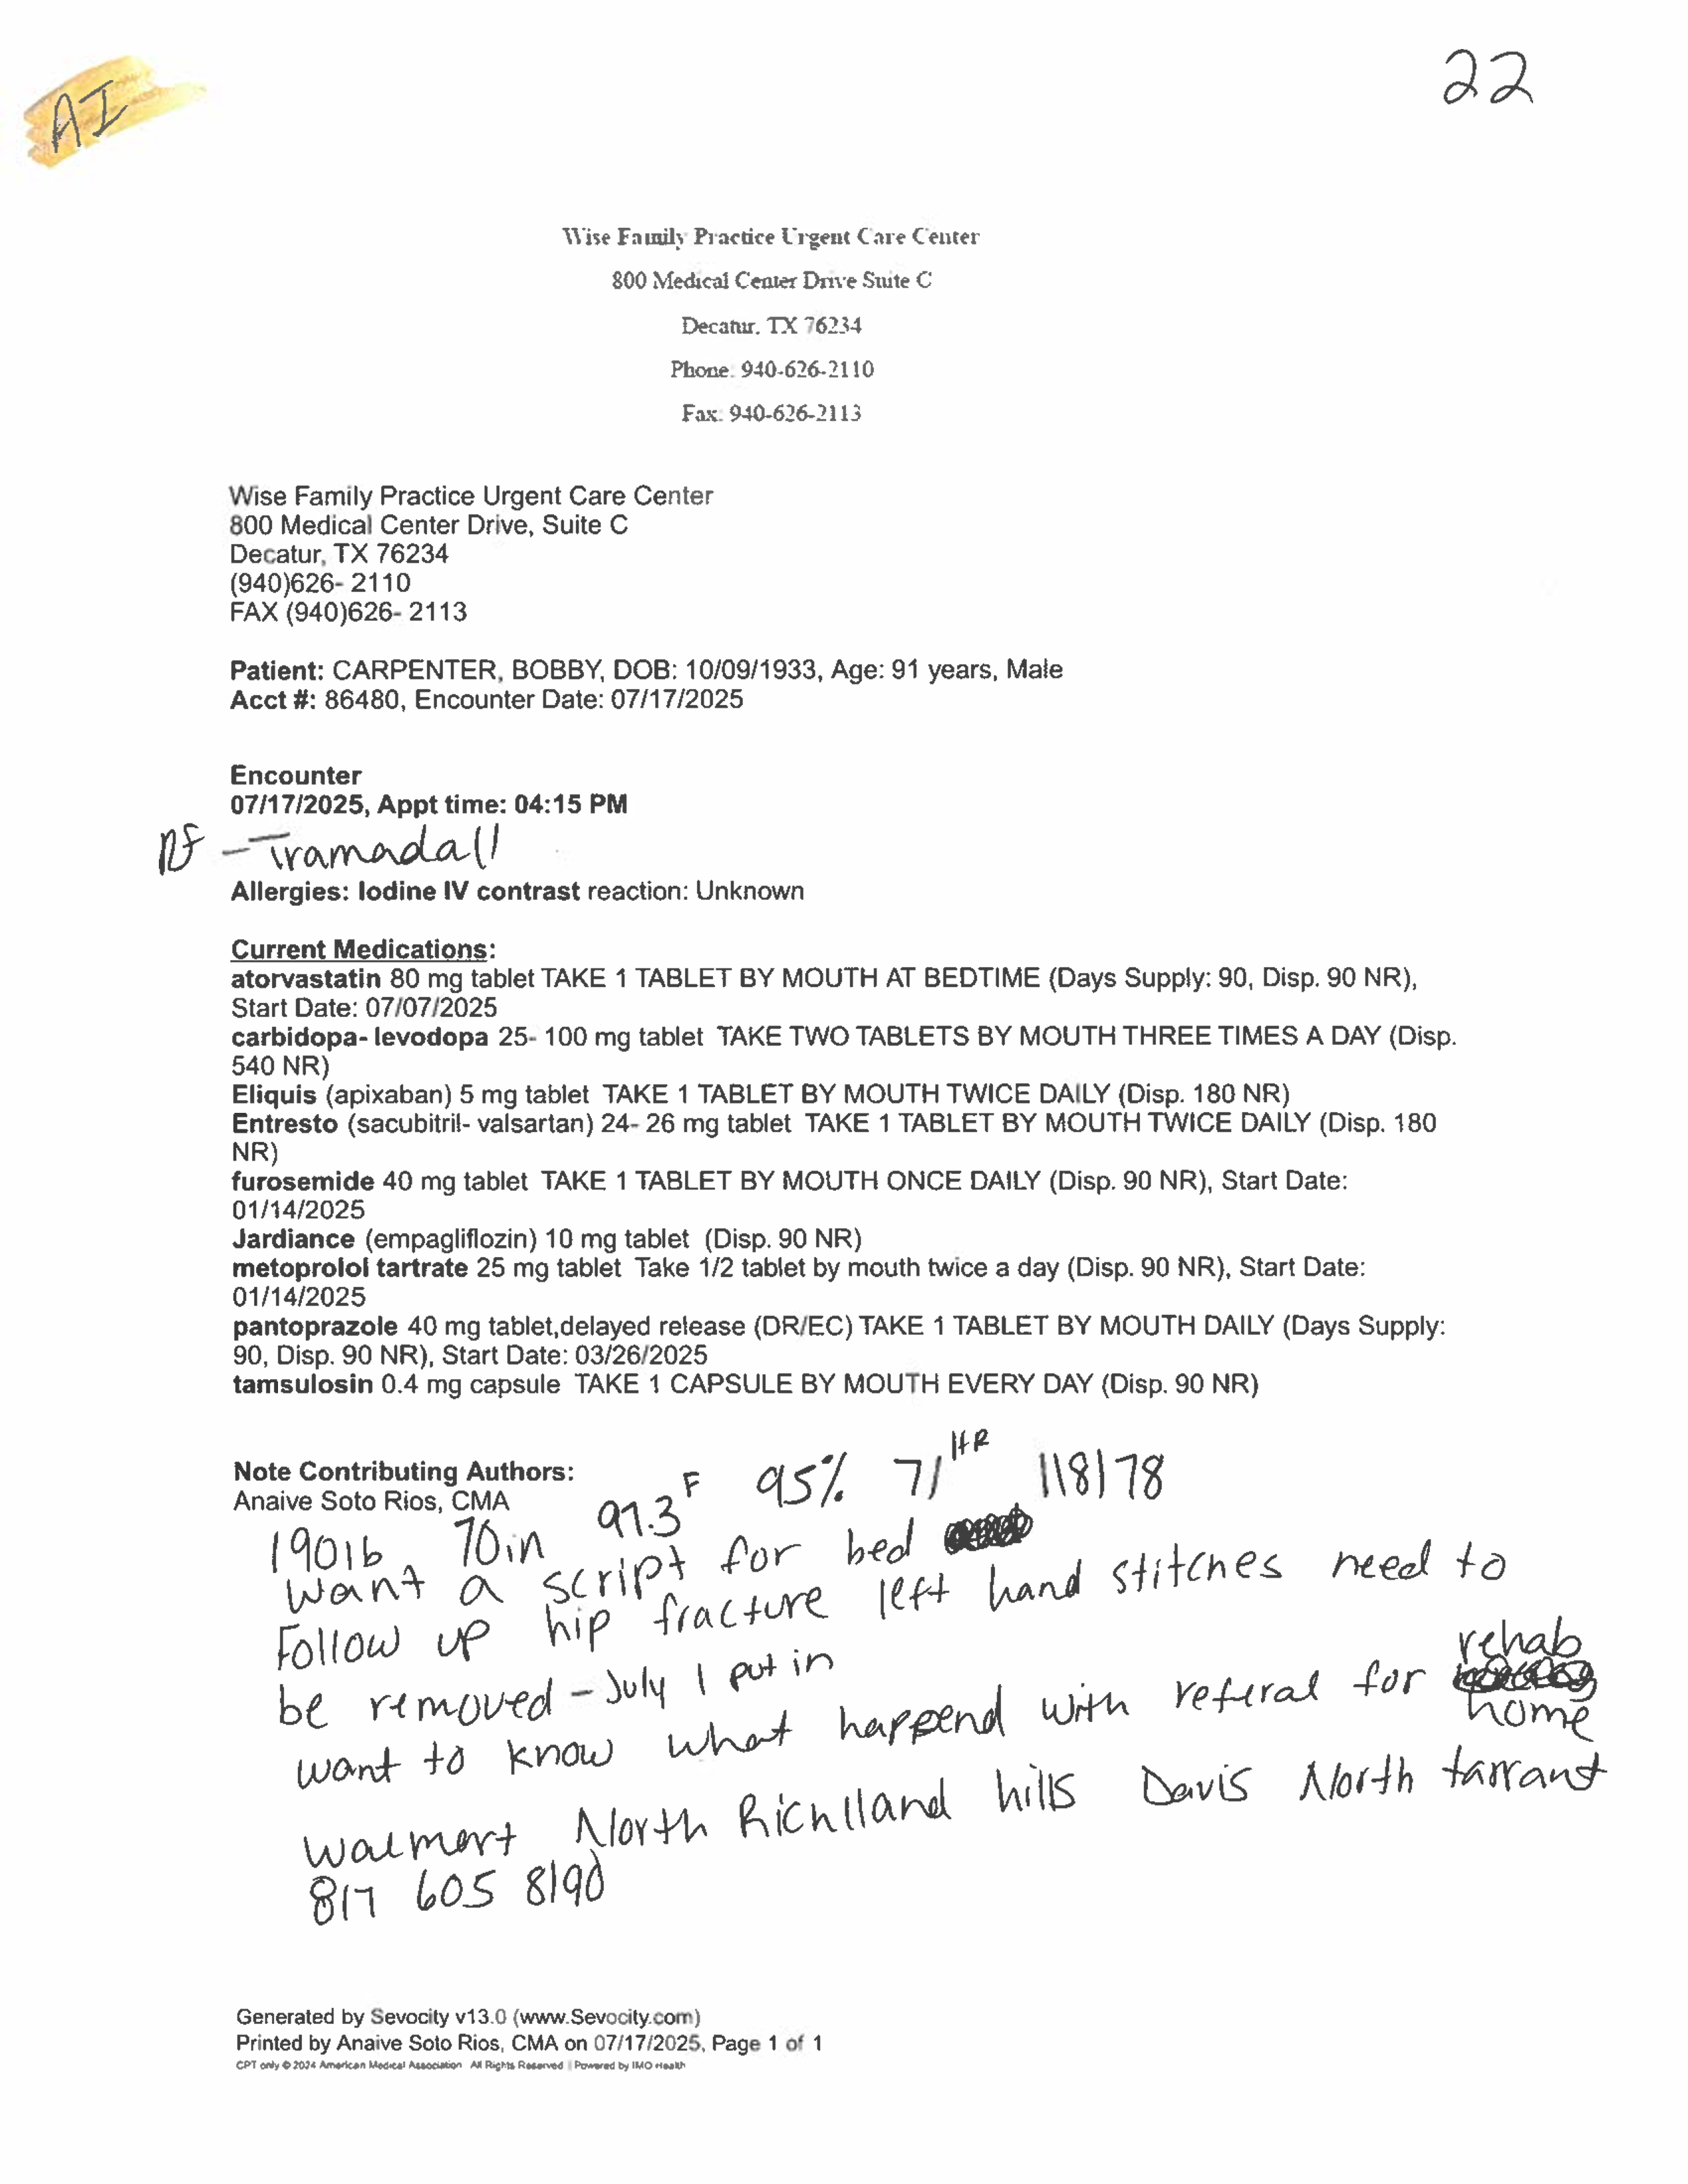 AI
22
Wise Family Practice Urgent Care Center
800 Medical Center Drive Suite C
Decatur, TX 76234
Phone: 940-626-2110
Fax: 940-626-2113
Wise Family Practice Urgent Care Center
800 Medical Center Drive, Suite C
Decatur, TX 76234
(940)626- 2110
FAX (940)626- 2113
Patient: CARPENTER, BOBBY, DOB: 10/09/1933, Age: 91 years, Male
Acct #: 86480, Encounter Date: 07/17/2025
Encounter
07/17/2025, Appt time: 04:15 PM
RF - Tramadall
Allergies: Iodine IV contrast reaction: Unknown
Current Medications:
atorvastatin 80 mg tablet TAKE 1 TABLET BY MOUTH AT BEDTIME (Days Supply: 90, Disp. 90 NR),
Start Date: 07/07/2025
carbidopa- levodopa 25- 100 mg tablet TAKE TWO TABLETS BY MOUTH THREE TIMES A DAY (Disp.
540 NR)
Eliquis (apixaban) 5 mg tablet TAKE 1 TABLET BY MOUTH TWICE DAILY (Disp. 180 NR)
Entresto (sacubitril- valsartan) 24- 26 mg tablet TAKE 1 TABLET BY MOUTH TWICE DAILY (Disp. 180
NR)
furosemide 40 mg tablet TAKE 1 TABLET BY MOUTH ONCE DAILY (Disp. 90 NR), Start Date:
01/14/2025
Jardiance (empagliflozin) 10 mg tablet (Disp. 90 NR)
metoprolol tartrate 25 mg tablet Take 1/2 tablet by mouth twice a day (Disp. 90 NR), Start Date:
01/14/2025
pantoprazole 40 mg tablet,delayed release (DR/EC) TAKE 1 TABLET BY MOUTH DAILY (Days Supply:
90, Disp. 90 NR), Start Date: 03/26/2025
tamsulosin 0.4 mg capsule TAKE 1 CAPSULE BY MOUTH EVERY DAY (Disp. 90 NR)
Note Contributing Authors:
Anaive Soto Rios, CMA
190lb 70in 97.3 F 95% 71 HR 118/78
want a script for bed
Follow up hip fracture left hand stitches need to
be removed - July 1 put in
want to know what happend with referal for rehab
home
walmart North Richlland hills Davis North tarrant
817 605 8190
Generated by Sevocity v13.0 (www.Sevocity.com)
Printed by Anaive Soto Rios, CMA on 07/17/2025, Page 1 of 1
CPT only © 2024 American Medical Association All Rights Reserved | Powered by IMO Health